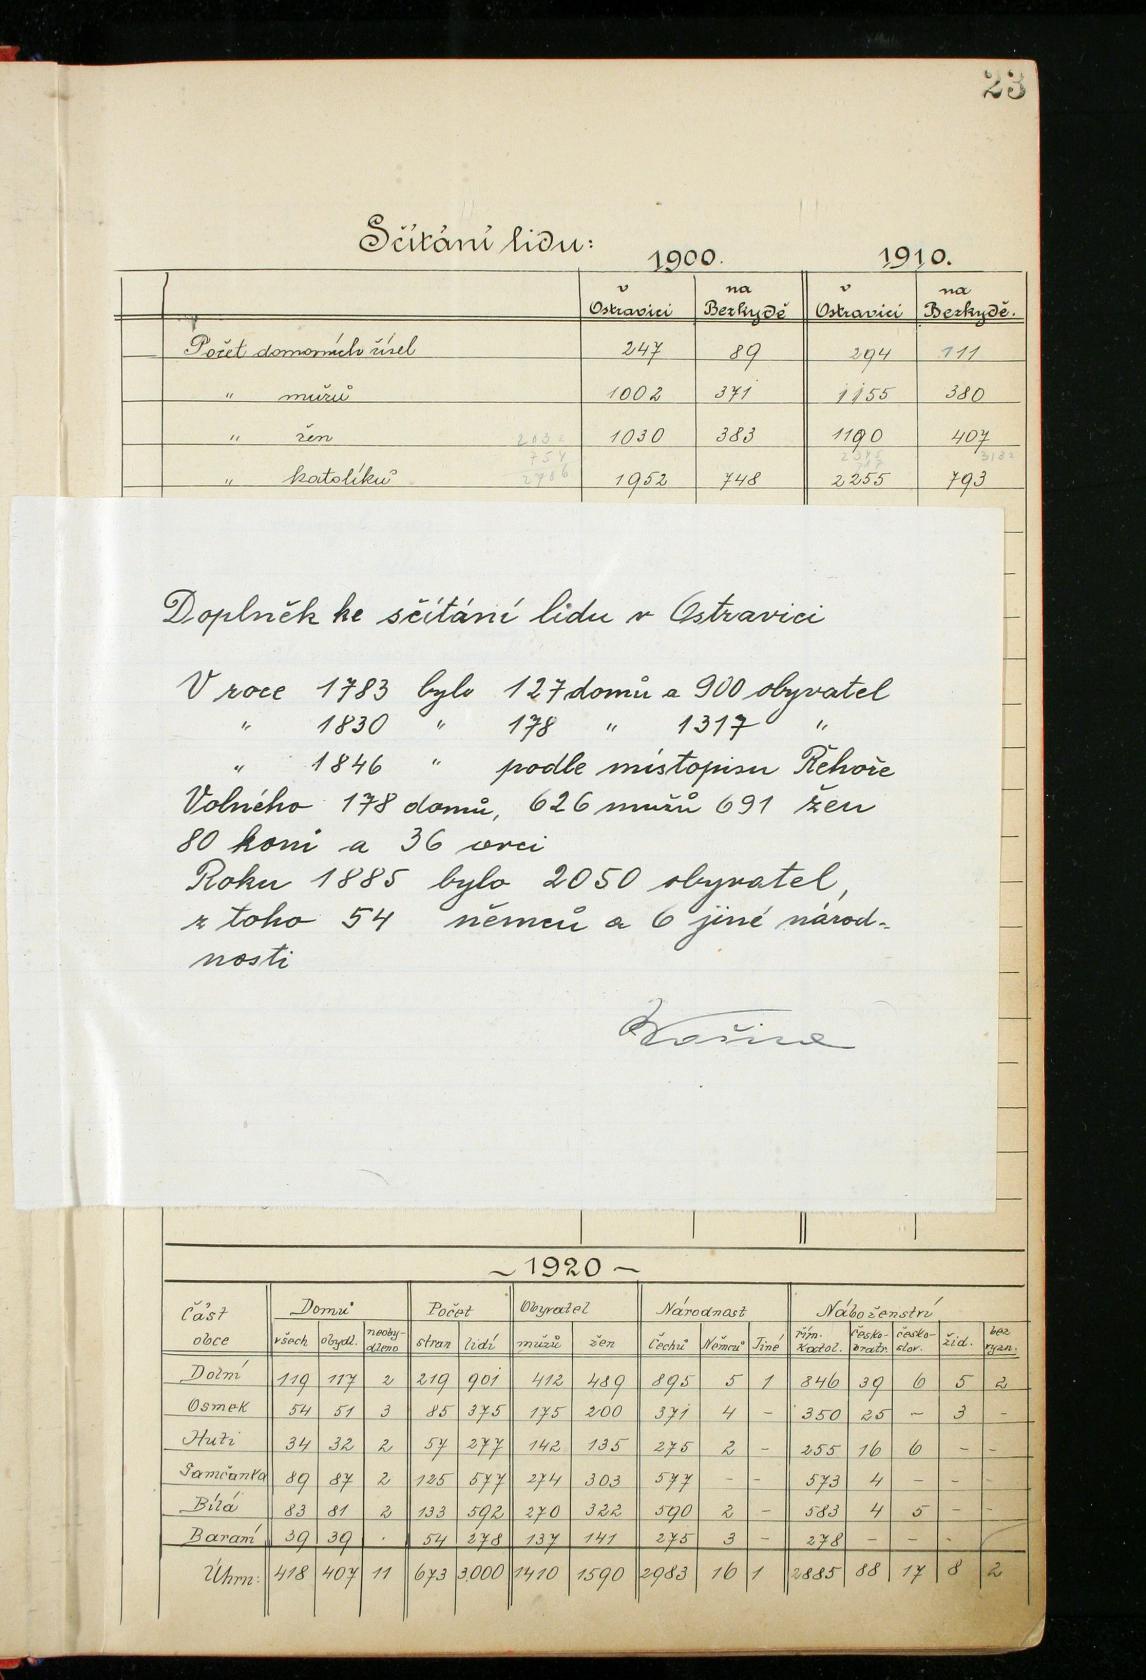 23
Sčítání lidu:
1900. 1910.
v Ostravici na Bezkydě v Ostravici na Bezkydě.
Počet domovních čísel 247 89 294 111
" mužů 1002 371 1155 380
" žen 1030 383 1190 407
" katolíků 1952 748 2255 793
Doplněk ke sčítání lidu v Ostravici
V roce 1783 bylo 127 domů a 900 obyvatel
" 1830 " 178 " 1317 "
" 1846 " podle místopisu Řehoře
Volného 178 domů, 626 mužů 691 žen
80 koní a 36 ovcí
Roku 1885 bylo 2050 obyvatel,
z toho 54 němců a 6 jiné národ-
nosti
~ 1920 ~
Část obce Domů Počet Obyvatel Národnost Náboženství
všech obydl. neoby-dleno stran lidí mužů žen Čechů Němců Jiné řím. katol. česko-bratr. česko-slov. žid. bez vyzn.
Dolní 119 117 2 219 901 412 489 895 5 1 846 39 6 5 2
Osmek 54 51 3 85 375 175 200 371 4 - 350 25 - 3 -
Huti 34 32 2 57 277 142 135 275 2 - 255 16 6 - -
Samčanka 89 87 2 125 577 274 303 577 - - 573 4 - - -
Bílá 83 81 2 133 592 270 322 590 2 - 583 4 5 - -
Baraní 39 39 . 54 278 137 141 275 3 - 278 - - -
Úhrn: 418 407 11 673 3,000 1410 1590 2983 16 1 2885 88 17 8 2